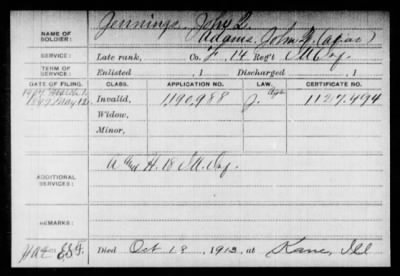 Jennings, John L.
NAME OF SOLDIER:
Adams, John Q. (alias)
SERVICE: Late rank, Co. F, 14 Reg't Ill. Inf.
TERM OF SERVICE: Enlisted , 1 Discharged , 1
DATE OF FILING. CLASS. APPLICATION NO. LAW. CERTIFICATE NO.
Invalid, 1190,988 1127,494
Widow,
Minor,
ADDITIONAL SERVICES: H. 18 Ill. Inf.
REMARKS:
Died Oct 18, 1912, at Kane, Ill